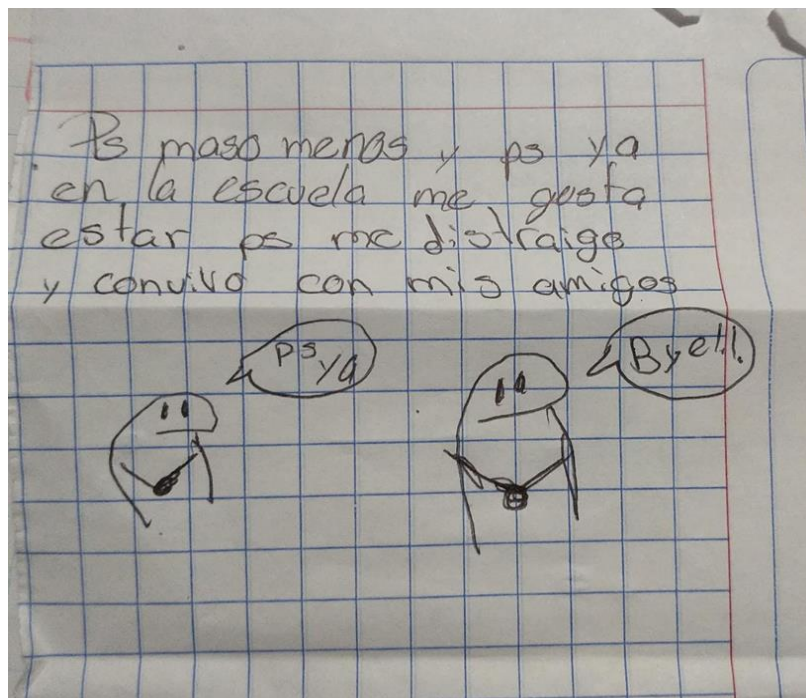 Ps maso menos y ps ya
en la escuela me gusta
estar ps me distraigo
y convivo con mis amigos
Ps ya
Bye!!!